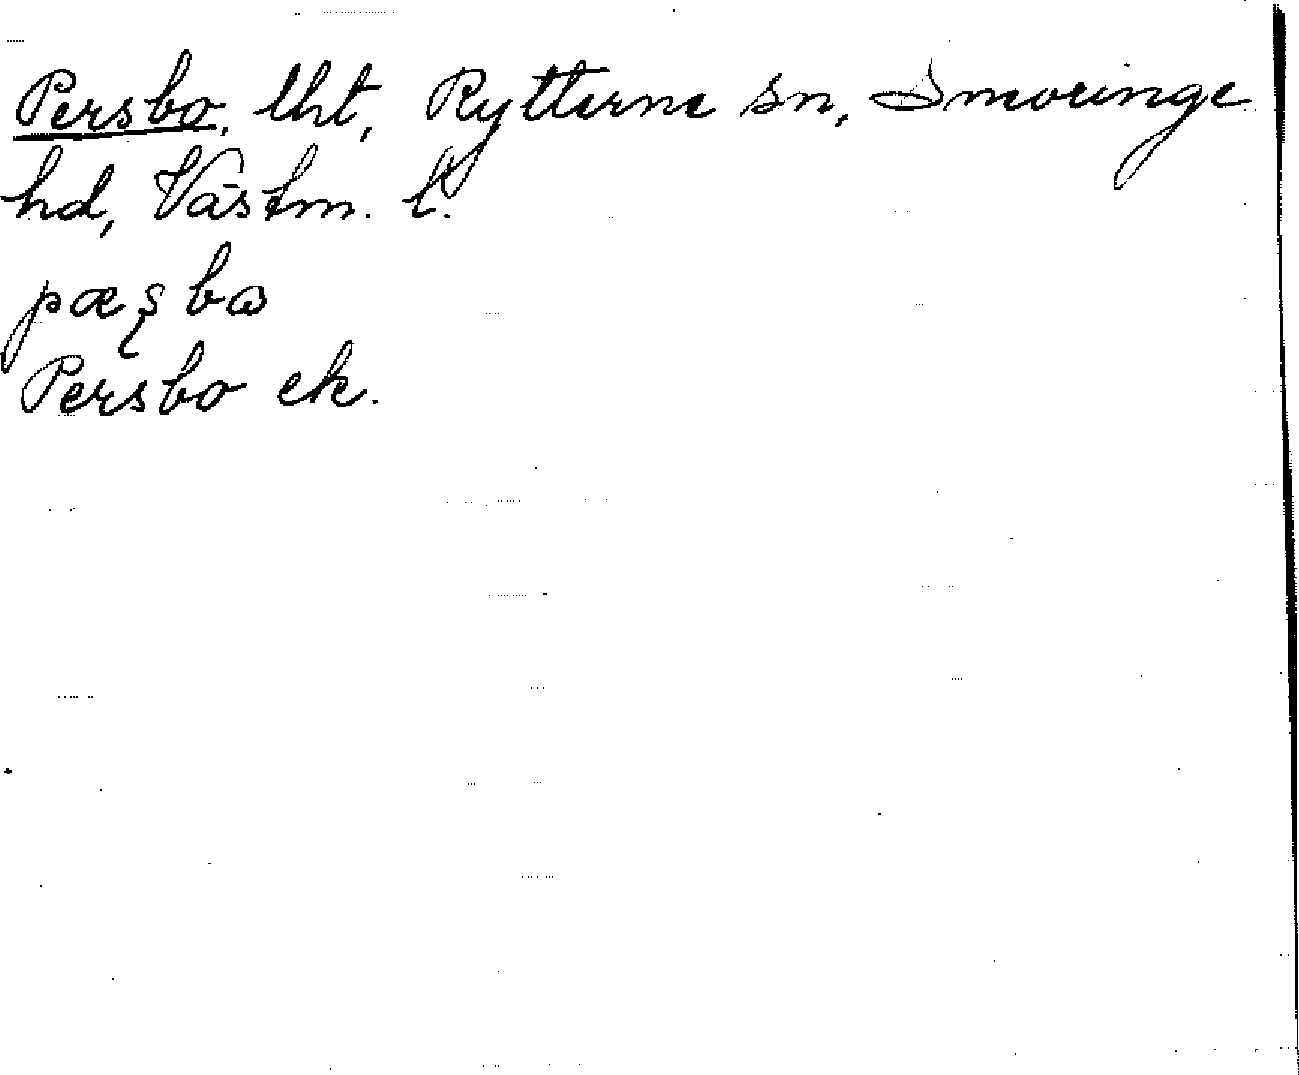 Persbo, lht, Rytterne sn, Snevringe
hd, Västm. l.
pæʂbɷ
Persbo ek.